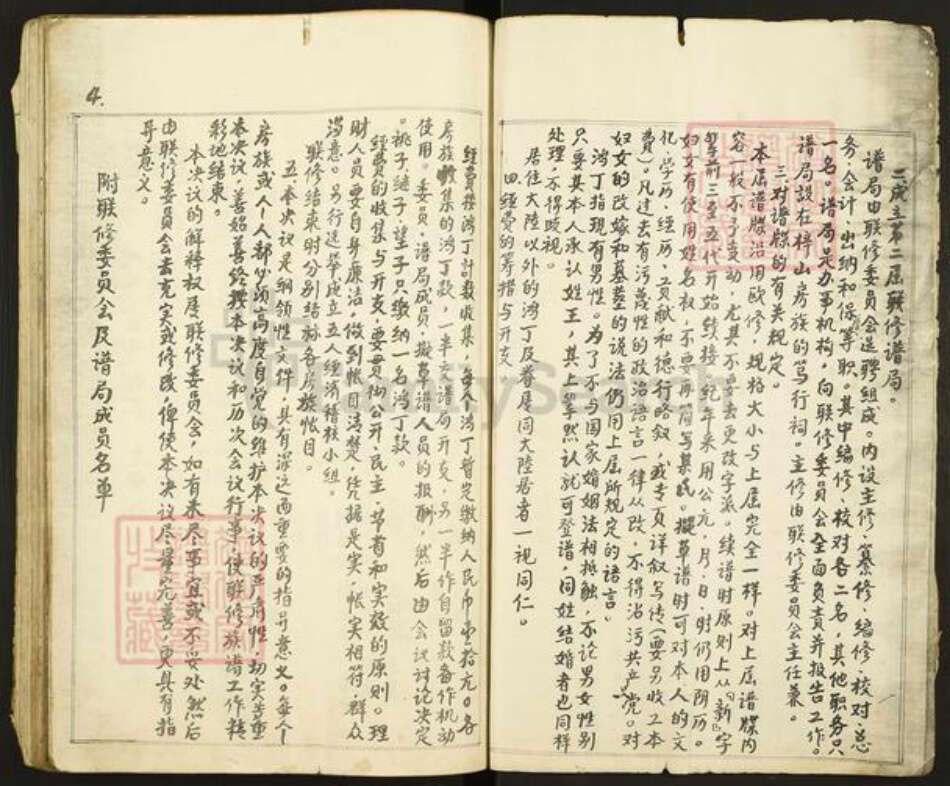 二成立第二届联修谱局。
谱局由联修委员会选聘组成。内设主修、纂修、编修、校对、总
务、会计、出纳和保管等职。其中编修、校对各二名，其他职务只
一名。谱局是办事机构，向联修委员会全面负责并报告工作。
谱局设在梓山房族的笃行祠。主修由联修委员会主任兼。
三对谱牒的有关规定。
本届谱牒沿用欧修，规格大小与上届完全一样。对上届谱牒内
容一般不予变动，尤其不要去更改字派。续谱时原则上从“新”字
辈前三至五代开始续接，纪年采用公元，月、日、时仍用阴历。
妇女有使用姓名权，不要再简写某氏。撰草谱时可对本人的文
化、学历、经历、贡献和德行略叙，或专页详叙写传（要另收工本
费）。凡过去有污蔑性的政治语言一律从改，不得沾污共产党。对
妇女的改嫁和墓茔的说法仍同上届所规定的语言。
鸿丁指现有男性。为了不与国家婚姻法相抵触，不论男女性别
只要其本人承认姓王，其上辈然认就可登谱，同姓结婚者也同样
处理，不得歧视。
居住大陆以外的鸿丁及眷属同大陆居者一视同仁。
四经费的筹措与开支
经费按鸿丁计数收集，每个鸿丁暂定缴纳人民币壹拾元。各
房族收集的鸿丁款，一半交谱局开支，另一半作自留款备作机动
使用。委员、谱局成员、撰草谱人员的报酬，然后由会议讨论决定
。祧子、继子、望子只缴纳一名鸿丁款。
经费的收集与开支，要贯彻公开、民主、节省和实效的原则。理
财人员要自身廉洁，做到帐目清楚，凭据是实，帐实相符，群众
满意。另行选举成立五人经济稽核小组。
联修结束时分别结标各房族帐目。
五、本决议是纲领性文件，具有深远而重要的指导意义。每个
房族或人人都必须高度自觉的维护本决议的严肃性，切实尊重
本决议，善始善终按本决议和历次会议行事，使联修族谱工作精
彩地结束。
本决议的解释权属联修委员会，如有未尽事宜或不妥处，然后
由联修委员会去充实或修改，俾使本决议尽量完善，更具有指
导意义。
附联修委员会及谱局成员名单
4.
FamilySearch